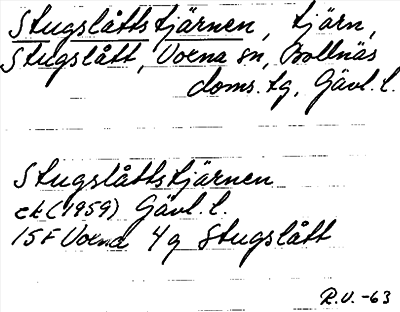 Stugslåttstjärnen, tjärn,
Stugslått, Voxna sn, Bollnäs
doms. tg, Gävl. l.
Stugslåttstjärnen
ek (1959) Gävl. l.
15F Voxna 4g Stugslått
R.U. -63